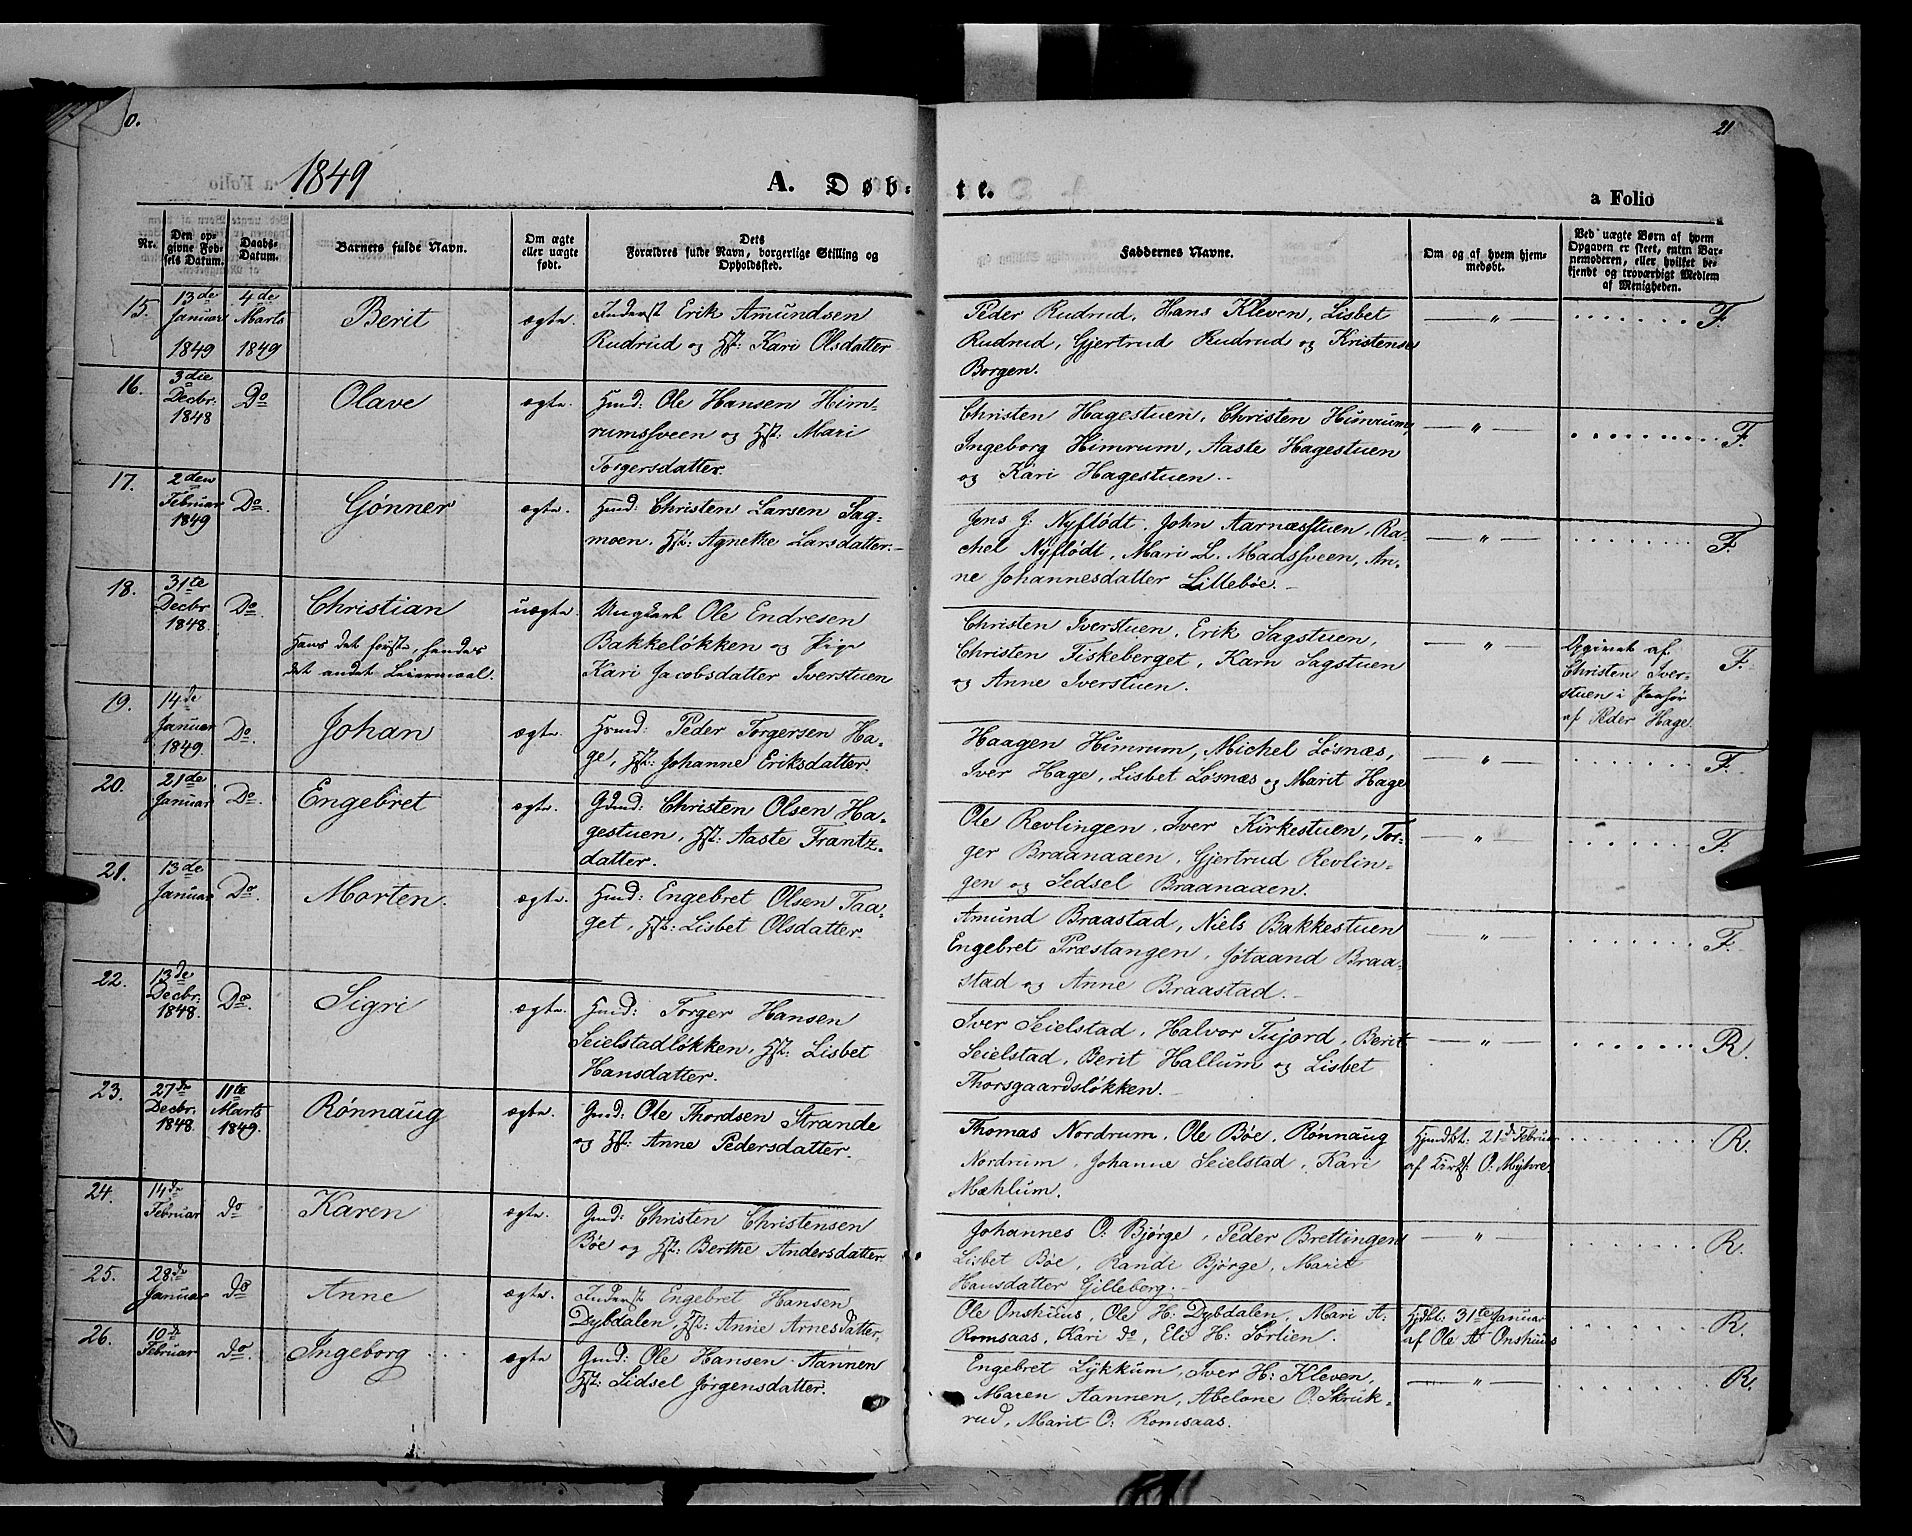 0.
21
1849
A. Døb-
te.
a Folio
Nr.
Den op-
givne Fød-
sels Datum.
Daabs-
Datum.
Barnets fulde Navn.
Om ægte
eller uægte
født.
Dets
Forældres fulde Navn, borgerlige Stilling og
Opholdssted.
Faddernes Navne.
Om og af hvem hjem-
medøbt.
Ved uægte Børn af hvem
Opgaven er skeet, enten Bar-
nemoderen, eller hvilket be-
kjendt og troværdigt Medlem
af Menigheden.
15.
13de
Januar
1849
4de
Marts
1849
Berit
ægte.
Inderst Erik Amundsen
Rudrud og Hst: Kari Olsdatter
Peder Rudrud, Hans Kleven, Lisbet
Rudrud, Gjertrud Rudrud og Kristense
Borgen.
— " —
F.
16.
3die
Decbr.
1848
Do
Olave
ægte.
Hmd: Ole Hansen Him-
rumssveen og Hst: Mari
Torgersdatter.
Christen Hagestuen, Christen Himrum,
Ingeborg Himrum, Aaste Hagestuen
og Kari Hagestuen.
— " —
F.
17.
2den
Februar
1849
Do.
Gønner
ægte.
Hmd: Christen Larsen Sag-
moen. Hst: Agnethe Larsdatter.
Jens J: Nyflødt, John Aarnæsstuen, Ra-
chel Nyflødt, Mari L. Madssveen, An-
ne Johannesdatter Lillebøe.
— " —
F.
18.
31te
Decbr
1848.
Do.
Christian
Hans det første, hendes
det andet Leiermaal.
uægte.
Ungkarl Ole Endresen
Bakkeløkken og Pige
Kari Jacobsdatter Iverstuen
Christen Iverstuen, Erik Sagstuen,
Christen Fiskeberget, Karn Sagstuen
og Anne Iverstuen.
— " —
Opgivet af
Christen Iver-
stuen i Paahør
af Peder Hage.
F.
19.
14de
Januar
1849.
Do.
Johan
ægte.
Hmd: Peder Torgersen Ha-
ge, Hst: Johanne Eriksdatter.
Haagen Himrum, Michel Løsnæs,
Iver Hage, Lisbet Løsnæs og Marit Hage
— " —
F.
20.
21de
Januar
Do.
Engebret
ægte.
Gmd: Christen Olsen Ha-
gestuen, Hst: Aaste Frantz-
datter.
Ole Revlingen, Iver Kirkestuen, Tor-
ger Braanaaen, Gjertrud Revlin-
gen og Sedsel Braanaaen.
— " —
F.
21.
13de
Januar
Do.
Morten.
ægte.
Hmd: Engebret Olsen Taa-
get, Hst: Lisbet Olsdatter.
Amund Braastad, Niels Bakkestuen
Engebret Præstangen, Jotaand Braa-
stad og Anne Braastad.
— " —
F.
22.
13de
Decbr:
1848.
Do.
Sigri
ægte.
Hmd: Torger Hansen
Seielstadløkken, Hst: Lisbet
Hansdatter.
Iver Seielstad, Halvor Tujord, Berit
Seielstad, Berit Hallum og Lisbet
Thorsgaardsløkken.
— " —
R.
23.
27de
Decbr:
1848.
11te
Marts
1849.
Rønnaug
ægte.
Gmd: Ole Thordsen Strande
og Hst: Anne Pedersdatter.
Thomas Nordrum, Ole Bøe, Rønnaug
Nordrum, Johanne Seielstad, Kari
Mæhlum.
Hjmdbt: 21de Februar
af Kirks: O: Myhre
R.
24.
14de
Februar
do
Karen
ægte.
Gmd: Christen Christensen
Bøe og Hst: Berthe Andersdatter
Johannes O: Bjørge, Peder Brettingen
Lisbet Bøe, Randi Bjørge, Marit
Hansdatter Gilleborg.
— " —
R.
25.
28de
Januar
do
Anne
ægte.
Inderst Engebret Hansen
Dybdalen, Hst: Anne Arnesdatter.
Ole Onshuus, Ole H: Dybdalen, Mari A:
Romsaas, Kari do, Eli H: Sørlien.
Hjdbt: 31te Januar
af Ole A: Onshuus
R.
26.
10de
Februar
do.
Ingeborg
ægte
Gmd: Ole Hansen Aannen
Hst: Sidsel Jørgensdatter.
Engebret Lykkum, Iver H: Kleven,
Maren Aannen, Abelone O: Skruk-
rud, Marit O: Romsaas.
— " —
R.